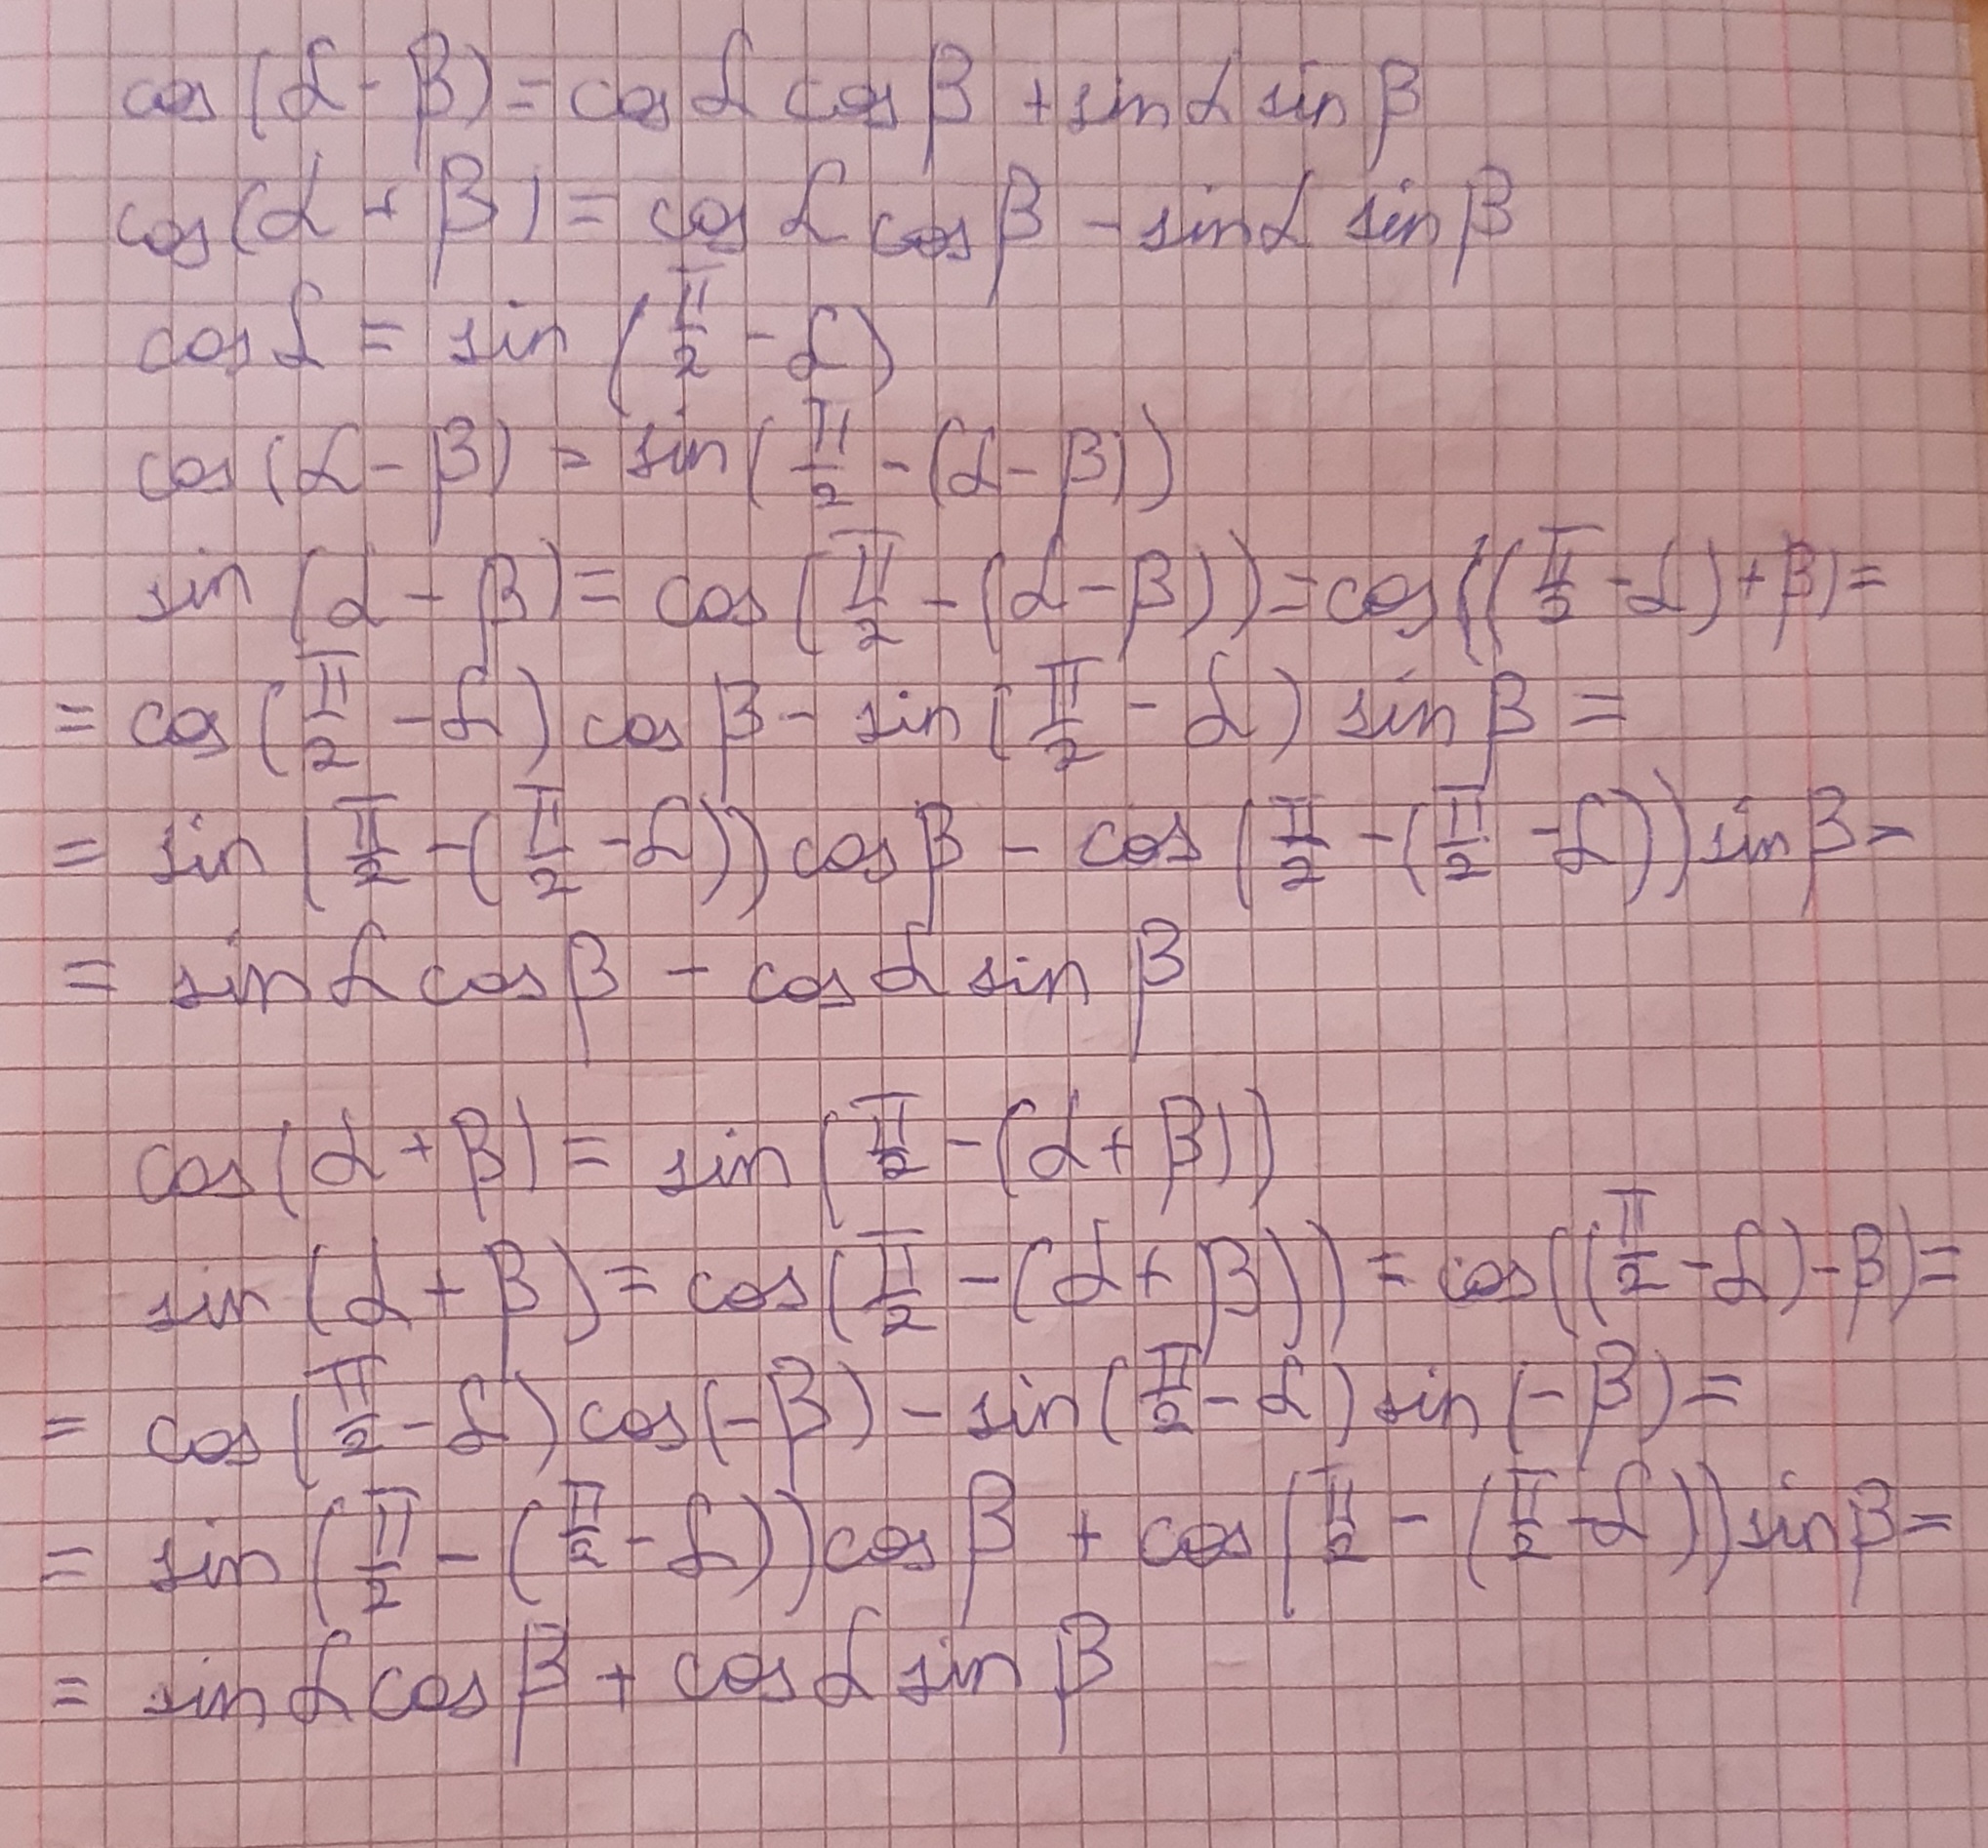 cos(α - β) = cos α cos β + sin α sin β
cos(α + β) = cos α cos β - sin α sin β
cos α = sin (π/2 - α)
cos (α - β) = sin (π/2 - (α - β))
sin (α - β) = cos (π/2 - (α - β)) = cos ((π/2 - α) + β) =
= cos (π/2 - α) cos β - sin (π/2 - α) sin β =
= sin (π/2 - (π/2 - α)) cos β - cos (π/2 - (π/2 - α)) sin β =
= sin α cos β - cos α sin β
cos (α + β) = sin (π/2 - (α + β))
sin (α + β) = cos (π/2 - (α + β)) = cos ((π/2 - α) - β) =
= cos (π/2 - α) cos (-β) - sin (π/2 - α) sin (-β) =
= sin (π/2 - (π/2 - α)) cos β + cos (π/2 - (π/2 - α)) sin β =
= sin α cos β + cos α sin β